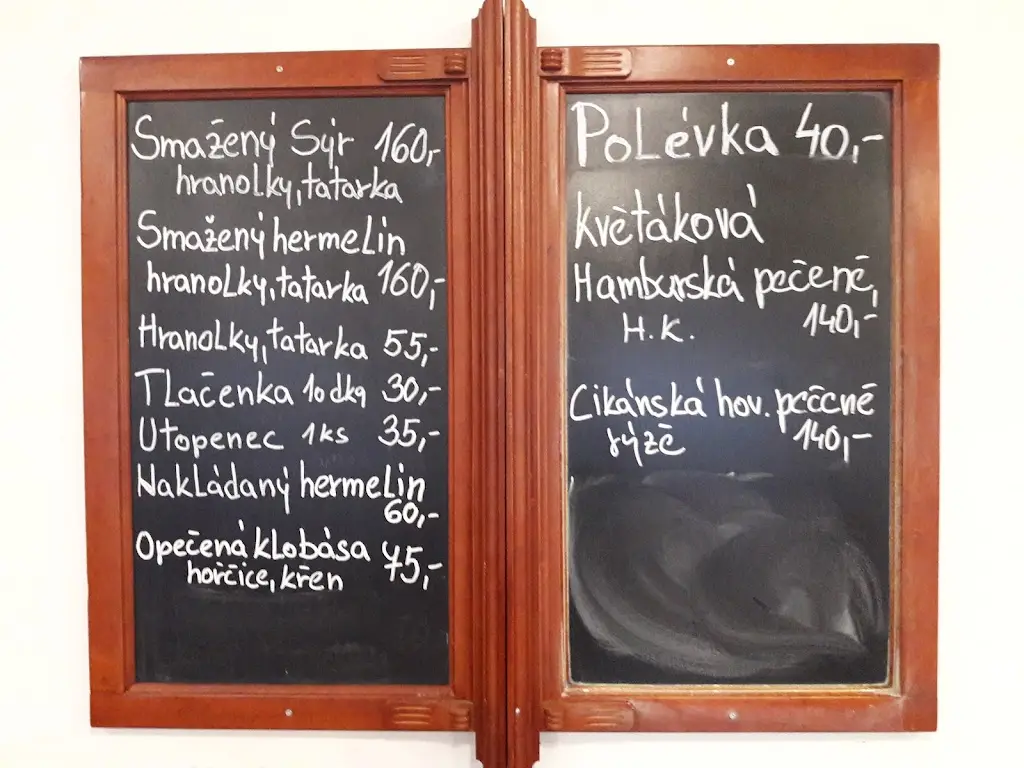 Smažený Sýr 160,-
hranolky, tatarka
Smažený hermelin
hranolky, tatarka 160,-
Hranolky, tatarka 55,-
Tlačenka 10 dkg 30,-
Utopenec 1 ks 35,-
Nakládaný hermelin
60,-
Opečená klobása 75,-
hořčice, křen
Polévka 40,-
Květáková
Hamburská pečeně,
H.K. 140,-
Cikánská hov. pečeně
rýže 140,-